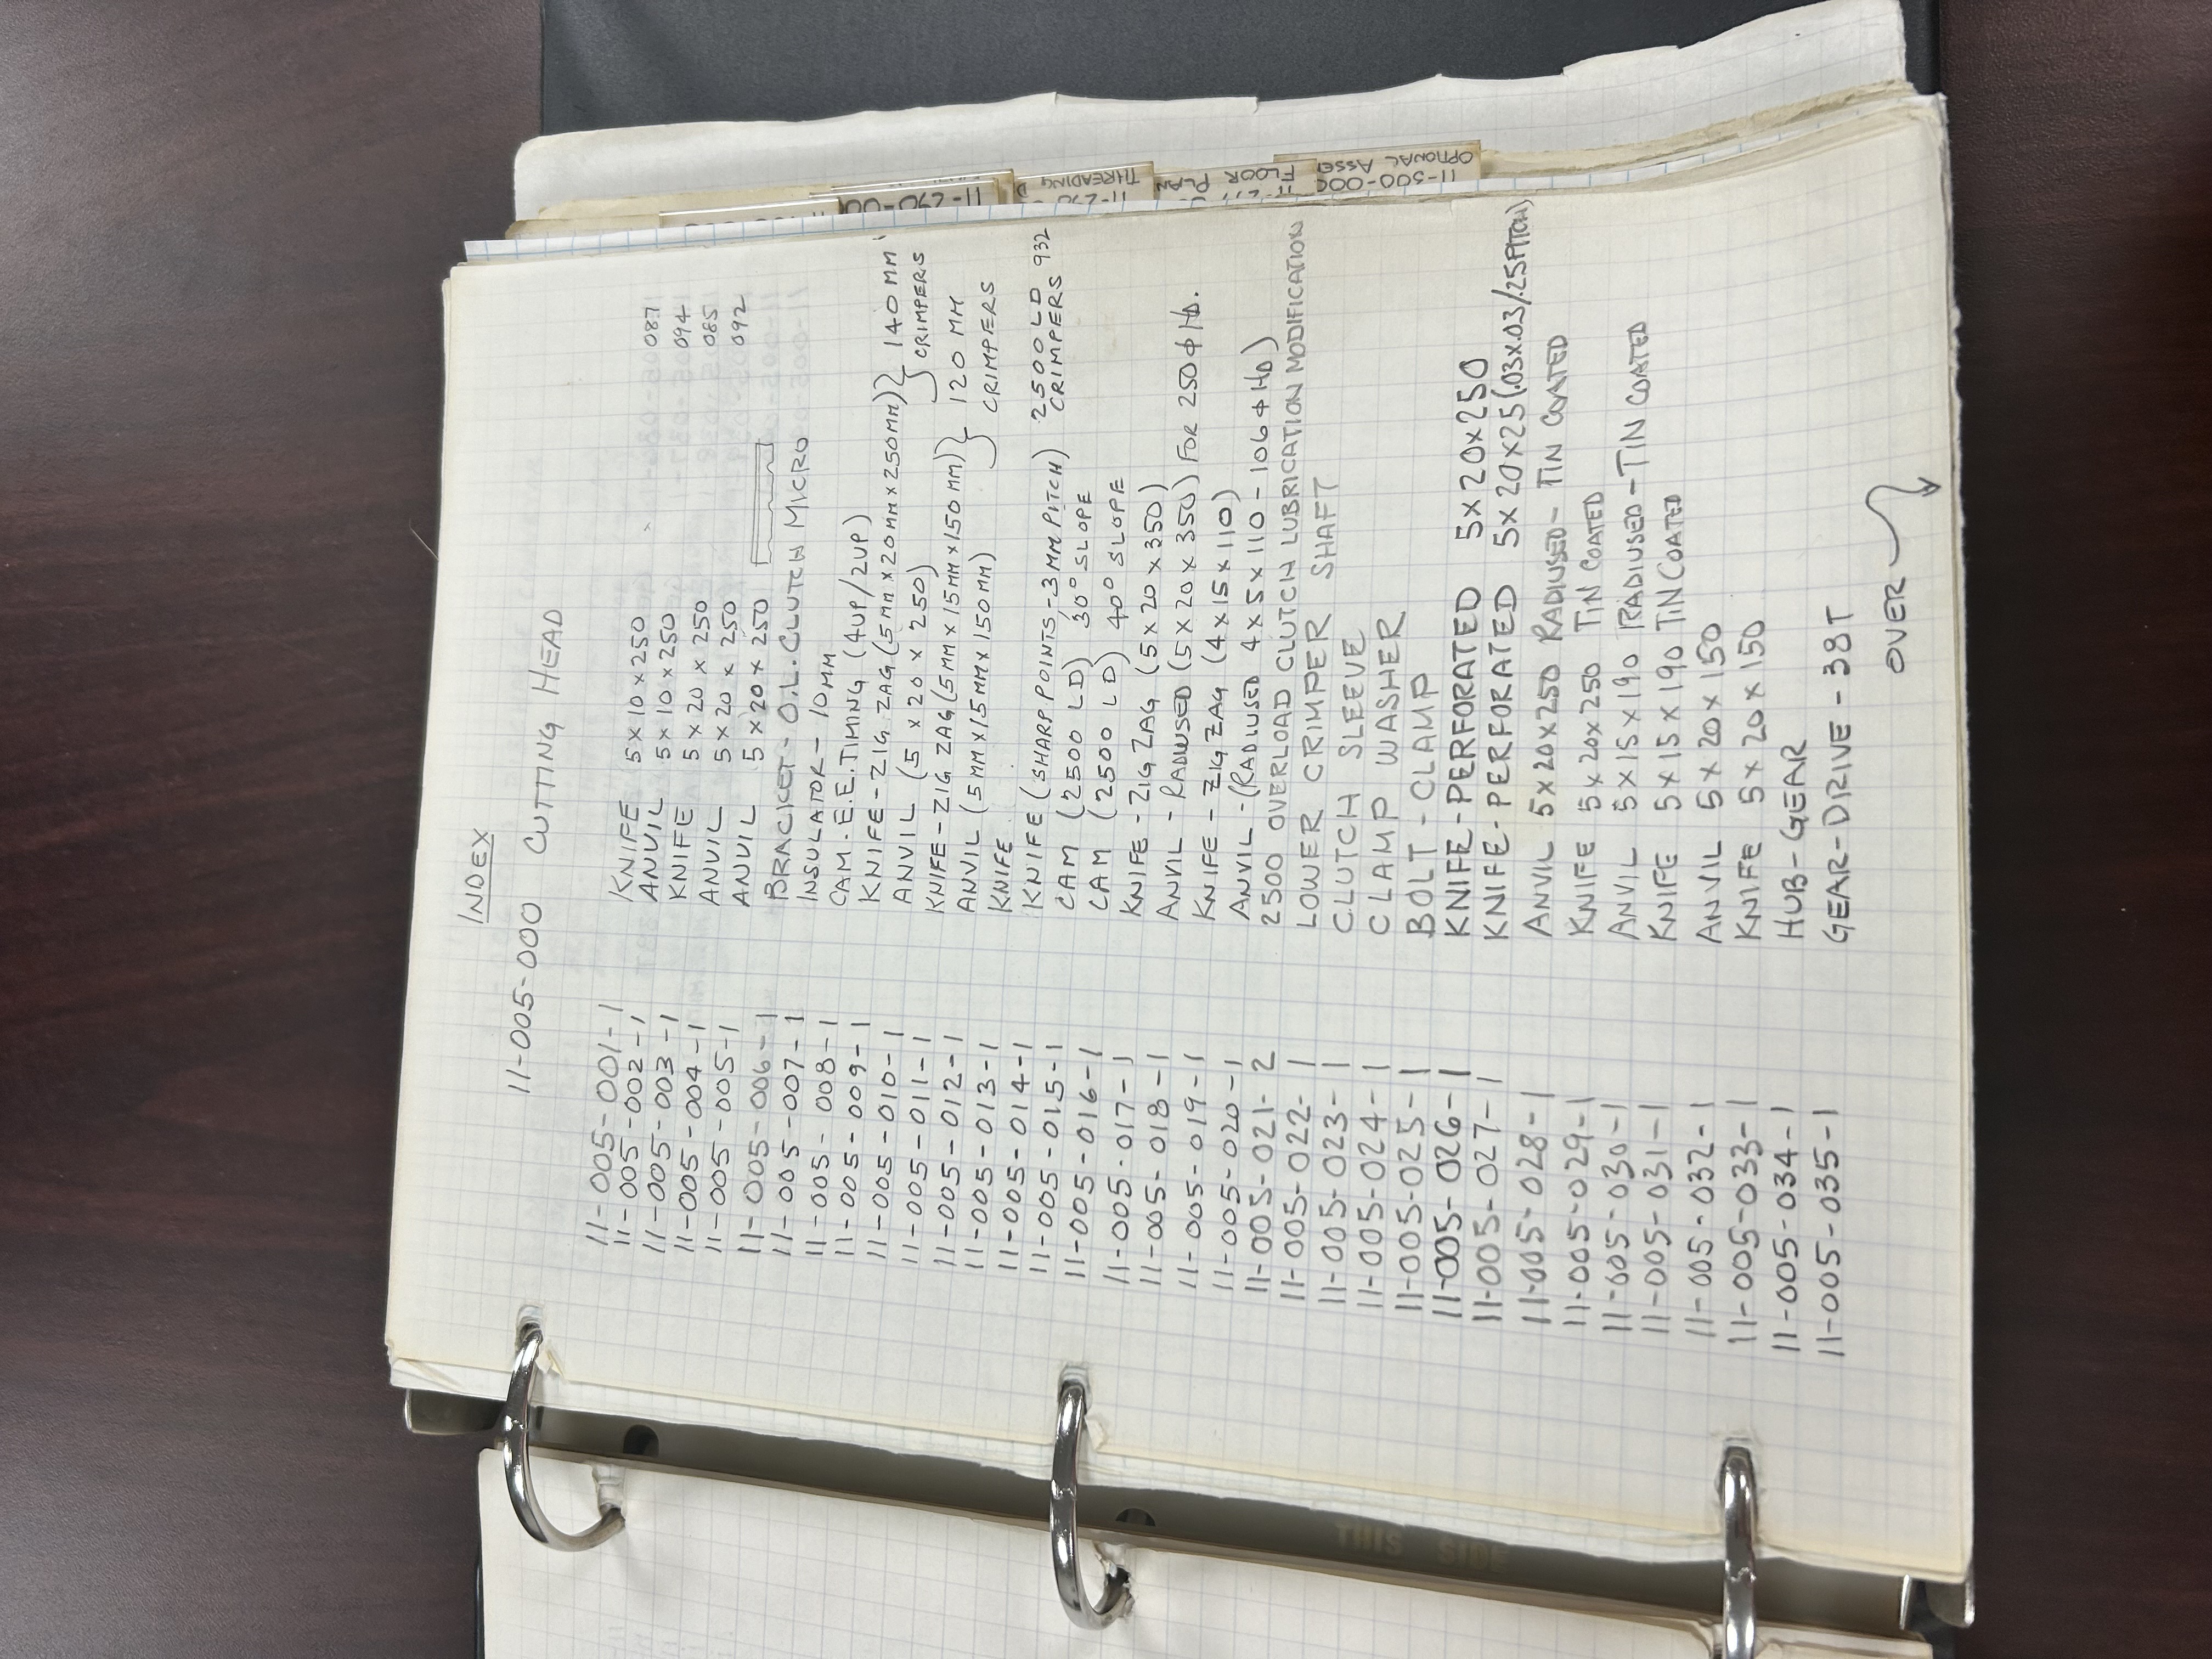 INDEX
11-005-000 CUTTING HEAD
11-005-001-1 KNIFE 5x10x250 087
11-005-002-1 ANVIL 5x10x250 094
11-005-003-1 KNIFE 5x20x250 085
11-005-004-1 ANVIL 5x20x250 092
11-005-005-1 ANVIL 5x20x250
11-005-006-1 BRACKET-O.L.CLUTCH MICRO
11-005-007-1 INSULATOR-10MM
11-005-008-1 CAM-E.E.TIMING (4UP/2UP)
11-005-009-1 KNIFE-ZIG ZAG (5MMx20MMx250MM) } 140MM
11-005-010-1 ANVIL (5 x20x250) CRIMPERS
11-005-011-1 KNIFE-ZIG ZAG (5MMx15MMx150MM) } 120 MM
11-005-012-1 ANVIL (5MMx15MMx150MM) CRIMPERS
11-005-013-1 KNIFE
11-005-014-1 KNIFE (SHARP POINTS-3MM PITCH) 2500LD CRIMPERS 932
11-005-015-1 CAM (2500 LD) 30° SLOPE
11-005-016-1 CAM (2500 LD) 40° SLOPE
11-005-017-1 KNIFE-ZIG ZAG (5x20x350)
11-005-018-1 ANVIL-RADIUSED (5x20x350) FOR 250ϕ HD.
11-005-019-1 KNIFE-ZIG ZAG (4x15x110)
11-005-020-1 ANVIL-(RADIUSED 4x5x110-106ϕ HD)
11-005-021-2 2500 OVERLOAD CLUTCH LUBRICATION MODIFICATION
11-005-022-1 LOWER CRIMPER SHAFT
11-005-023-1 CLUTCH SLEEVE
11-005-024-1 CLAMP WASHER
11-005-025-1 BOLT-CLAMP
11-005-026-1 KNIFE-PERFORATED 5x20x250
11-005-027-1 KNIFE-PERFORATED 5x20x25(.03x.03/.25PITCH)
11-005-028-1 ANVIL 5x20x250 RADIUSED-TIN COATED
11-005-029-1 KNIFE 5x20x250 TiN COATED
11-005-030-1 ANVIL 5x15x190 RADIUSED-TIN COATED
11-005-031-1 KNIFE 5x15x190 TiN COATED
11-005-032-1 ANVIL 5x20x150
11-005-033-1 KNIFE 5x20x150
11-005-034-1 HUB-GEAR
11-005-035-1 GEAR-DRIVE-38T
OVER
THIS SIDE
THREADING
FLOOR PLAN
11-300-000
OPTIONAL